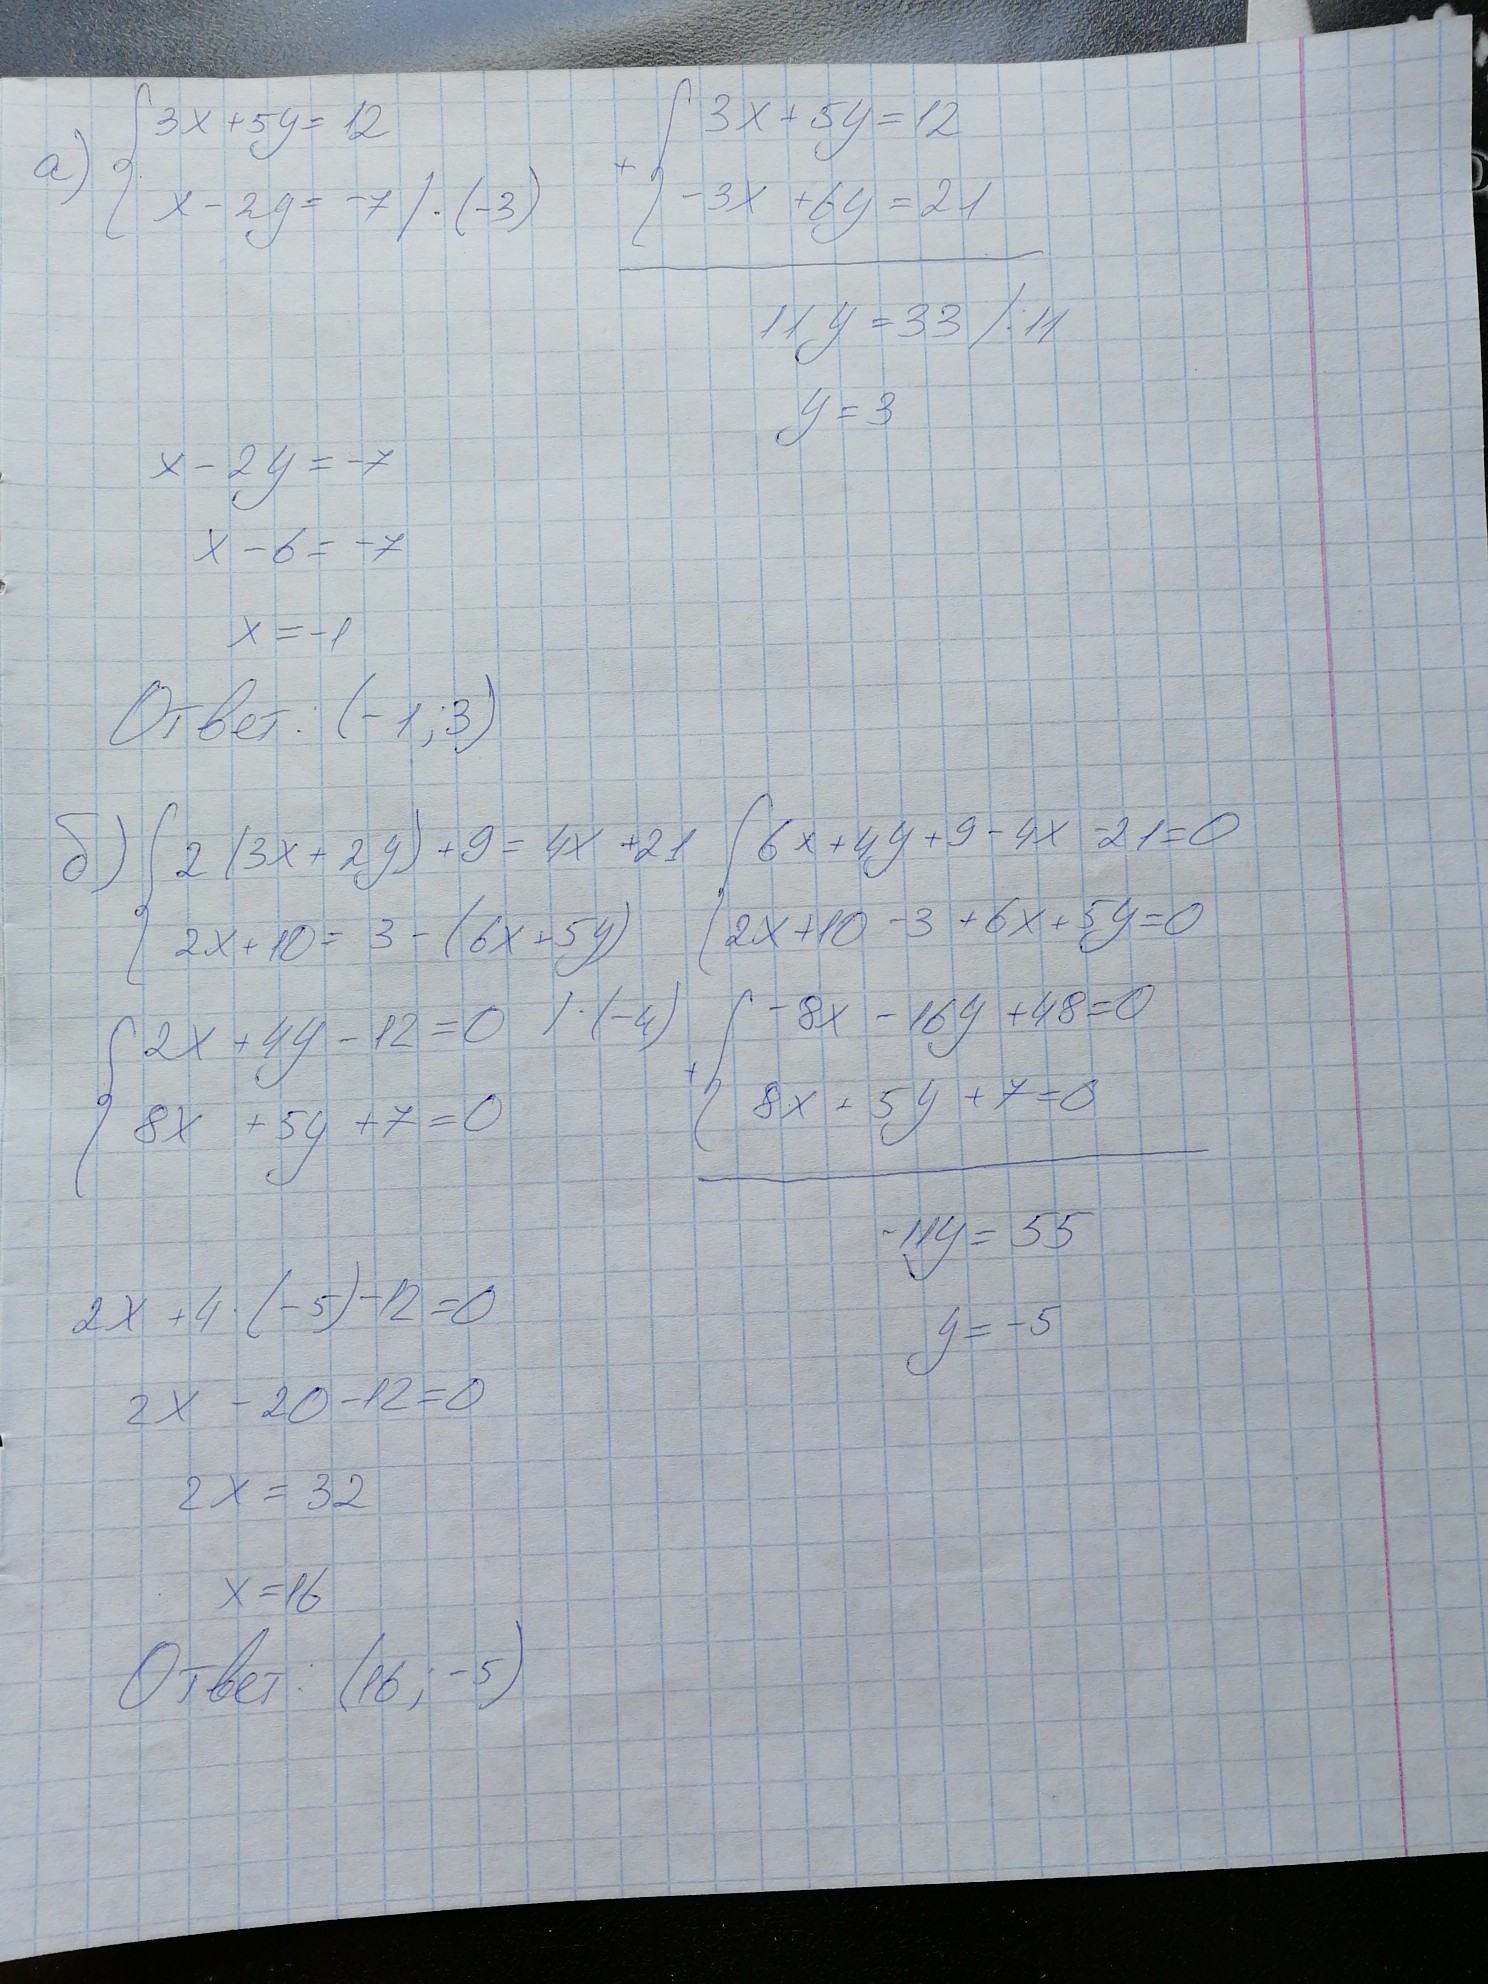 а) { 3x+5y=12
x-2y=-7 /·(-3)
+ { 3x+5y=12
-3x+6y=21
11y=33 /:11
y=3
x-2y=-7
x-6=-7
x=-1
Ответ: (-1;3)
б) { 2(3x+2y)+9=4x+21
2x+10=3-(6x+5y)
{ 6x+4y+9-4x-21=0
2x+10-3+6x+5y=0
{ 2x+4y-12=0 /·(-4)
8x+5y+7=0
+ { -8x-16y+48=0
8x+5y+7=0
-11y=55
y=-5
2x+4·(-5)-12=0
2x-20-12=0
2x=32
x=16
Ответ: (16;-5)